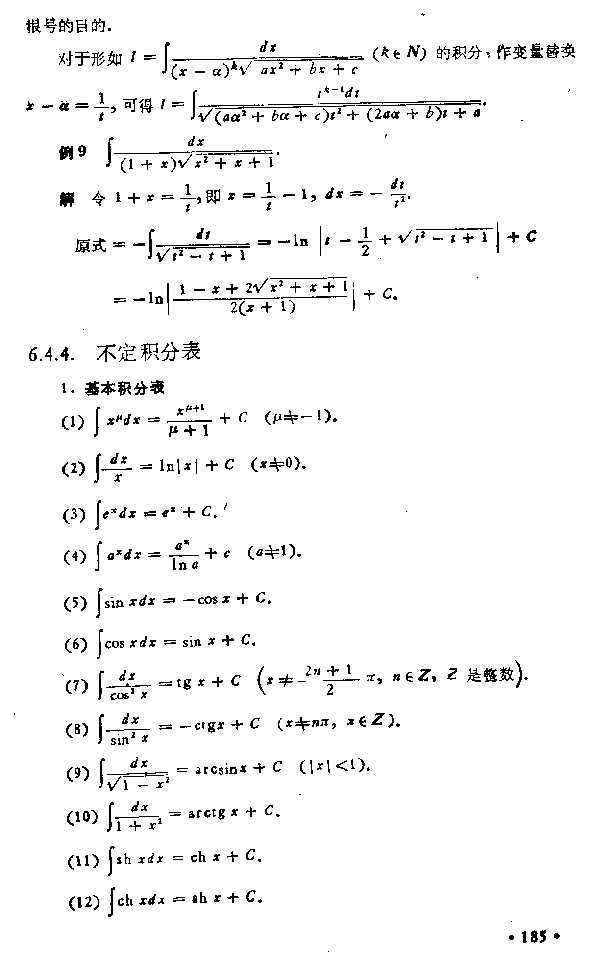 根号的目的.
对于形如 I = ∫ dx / ((x − α)^k √(ax² + bx + c)) (k ∈ N) 的积分, 作变量替换
x − α = 1/t, 可得 I = ∫ t^(k−1)dt / √((aα² + bα + c)t² + (2aα + b)t + a).
例9 ∫ dx / ((1 + x)√(x² + x + 1)).
解 令 1 + x = 1/t, 即 x = 1/t − 1, dx = − dt/t².
原式 = −∫ dt / √(t² − t + 1) = −ln |t − 1/2 + √(t² − t + 1)| + C
= −ln |(1 − x + 2√(x² + x + 1)) / (2(x + 1))| + C.
6.4.4. 不定积分表
1. 基本积分表
(1) ∫ x^μ dx = x^(μ+1) / (μ + 1) + C (μ ≠ −1).
(2) ∫ dx/x = ln|x| + C (x ≠ 0).
(3) ∫ e^x dx = e^x + C.
(4) ∫ a^x dx = a^x / ln a + c (a ≠ 1).
(5) ∫ sin xdx = −cos x + C.
(6) ∫ cos xdx = sin x + C.
(7) ∫ dx / cos² x = tg x + C (x ≠ (2n + 1)/2 π, n ∈ Z, Z 是整数).
(8) ∫ dx / sin² x = −ctgx + C (x ≠ nπ, x ∈ Z).
(9) ∫ dx / √(1 − x²) = arcsinx + C (|x| < 1).
(10) ∫ dx / (1 + x²) = arctg x + C.
(11) ∫ sh xdx = ch x + C.
(12) ∫ ch xdx = sh x + C.
• 185 •